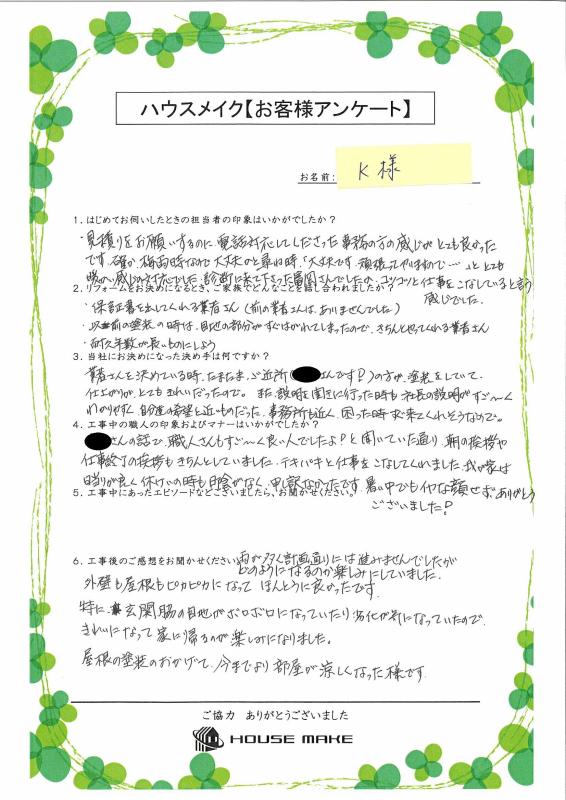 ハウスメイク【お客様アンケート】
お名前: K 様
1. はじめてお伺いしたときの担当者の印象はいかがでしたか？
・見積りをお願いするのに電話対応してくださった事務の方の感じがとても良かった
です。確か梅雨時なので大丈夫かと尋ね時、「大丈夫です 頑張ってやりますので……」ととても
感じの対応でした。診断に来て下さった富岡さんでしたか、コツコツと仕事をこなしていると言う
感じでした。
2. リフォームをお決めになるとき、ご家族でどんなことを話し合われましたか？
・保証書を出してくれる業者さん（前の業者さんは、ありませんでした）
・以前の塗装の時は、目地の部分がすぐはがれてしまったので、きちんとやってくれる業者さん
・耐久年数が長いものにしよう
3. 当社にお決めになった決め手は何ですか？
業者さんを決めている時、たまたま、ご近所（さんです!）の方が、塗装をしていて、
仕上がりが、とてもきれいだったので。また、説明を聞きに行った時も社長の説明がすご〜く
わかりやすく、自達の希望と近いものだった。事務所も近く、困った時すぐ来てくれそうなので。
4. 工事中の職人の印象およびマナーはいかがでしたか？
さんの話で、職人さんもすご〜く良い人でしたよ!と聞いていた通り、朝の挨拶や
仕事終了の挨拶もきちんとしていました。テキパキと仕事をこなしてくれました。我が家は
日当りが良く休けいの時も日陰がなく、申し訳なかったです。暑い中でもイヤな顔せず、ありがとう
ございました!
5. 工事中にあったエピソードなどございましたら、お聞かせください。
6. 工事後のご感想をお聞かせください。雨が多く計画通りには進みませんでしたが
どのようになるのか楽しみにしていました。
外壁も屋根もピカピカになって ほんとうに良かったです。
特に、玄関脇の目地がボロボロになっていたり劣化が気になっていたので、
きれいになって家に帰るのが楽しみになりました。
屋根の塗装のおかげで、今までより部屋が涼しくなった様です。
ご協力 ありがとうございました
HOUSE MAKE